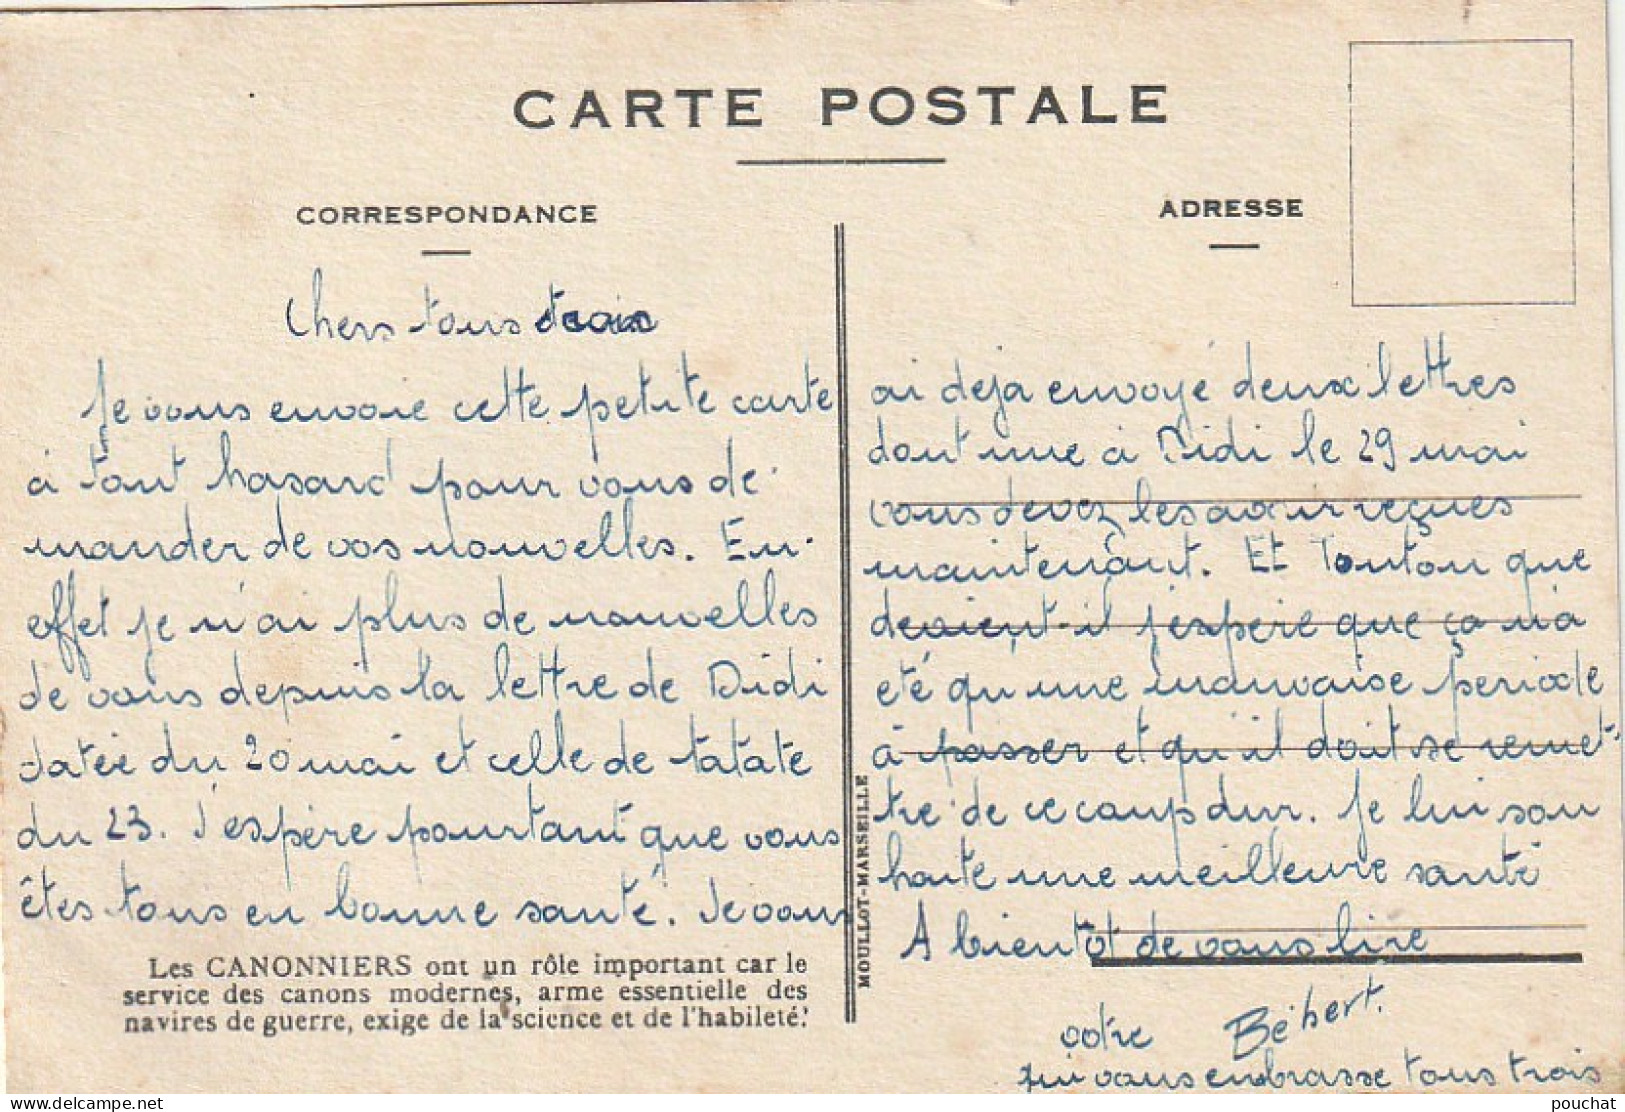 CARTE POSTALE
CORRESPONDANCE
Chers tous trois
Je vous envoie cette petite carte
à tout hasard pour vous de-
mander de vos nouvelles. En-
effet je n'ai plus de nouvelles
de vous depuis la lettre de Didi
datée du 20 mai et celle de tatate
du 23. J'espère pourtant que vous
êtes tous en bonne santé. Je vous
Les CANONNIERS ont un rôle important car le
service des canons modernes, arme essentielle des
navires de guerre, exige de la science et de l'habileté.
MOULLOT-MARSEILLE
ADRESSE
ai deja envoyé deux lettres
dont une à Didi le 29 mai
vous devez les avoir reçues
maintenant. Et Tonton que
devient-il j'espère que ça n'a
eté qu'une mauvaise periode
à passer et qu'il doit se remet-
tre de ce coup dur. Je lui sou
haite une meilleure santé
A bientôt de vous lire
votre Bébert.
qui vous enbrasse tous trois
delcampe.net
pouchat